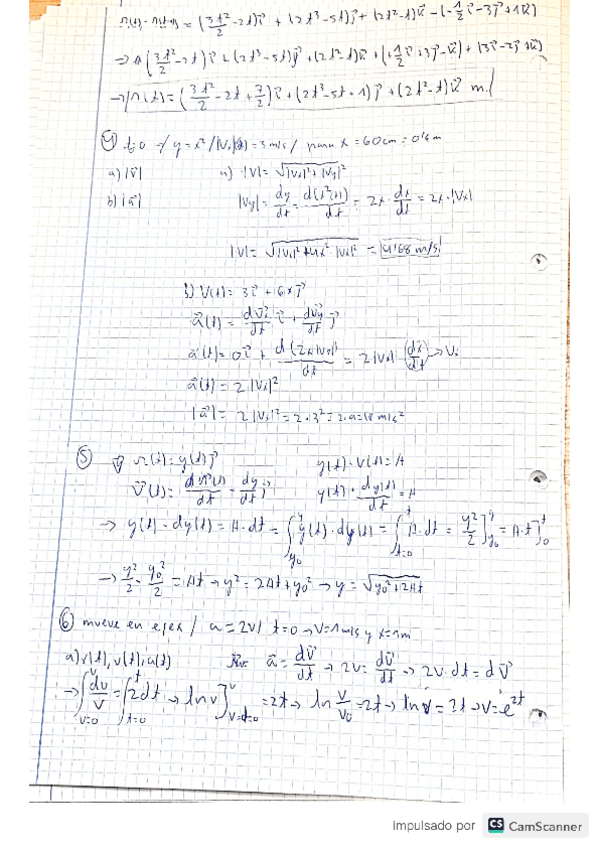 r(t) - r(t=0) = (3t²/2 - 2t)i + (2t³ - 5t)j + (2t² - t)k - (-1/2 i - 3j + 1k)
→ (3t²/2 - 2t)i + (2t³ - 5t)j + (2t² - t)k +
→ r(t) = (3t²/2 - 2t + 7/2)i + (2t³ - 5t + 1)j + (2t² - t)k m.
④ t=0 → y = x² / |Vx| = 3 m/s / para x = 60cm = 0'6m
a) |v| a) |V| = √|Vx|² + |Vy|²
b) |a| |Vy| = dy/dt = = 2x · dx/dt = 2x · |Vx|
|V| = √|Vx|² + 4x² |Vx|² = 4'68 m/s
b) V(t) = 3i + 6xj
a(t) = dvx/dt i + dvy/dt j
a(t) = 0i + d(2x|Vx|)/dt = 2|Vx| (dx/dt) → Vx
a(t) = 2|Vx|²
|a| = 2|Vx|² = 2·3² = 2·9 = 18 m/s²
⑤ r(t) = y(t)j y(t)·v(t) = A
V(t) = dr(t)/dt = dy/dt j y(t)· dy(t)/dt = A
→ y(t) · dy(t) = A·dt = ∫ y(t)·dy(t) = ∫ A·dt = y²/2] = A·t]
→ y²/2 - y0²/2 = At → y² = 2At + y0² → y = √y0² + 2At
⑥ mueve en eje x / a = 2v / t=0 → v=1m/s y x=1m
a) r(t), v(t), a(t) a = dv/dt → 2v = dv/dt → 2v·dt = dv
→ ∫ dv/v = ∫ 2dt → ln v] = 2t → ln v/v0 = 2t → ln v = 2t → v = e^2t
Impulsado por CS CamScanner